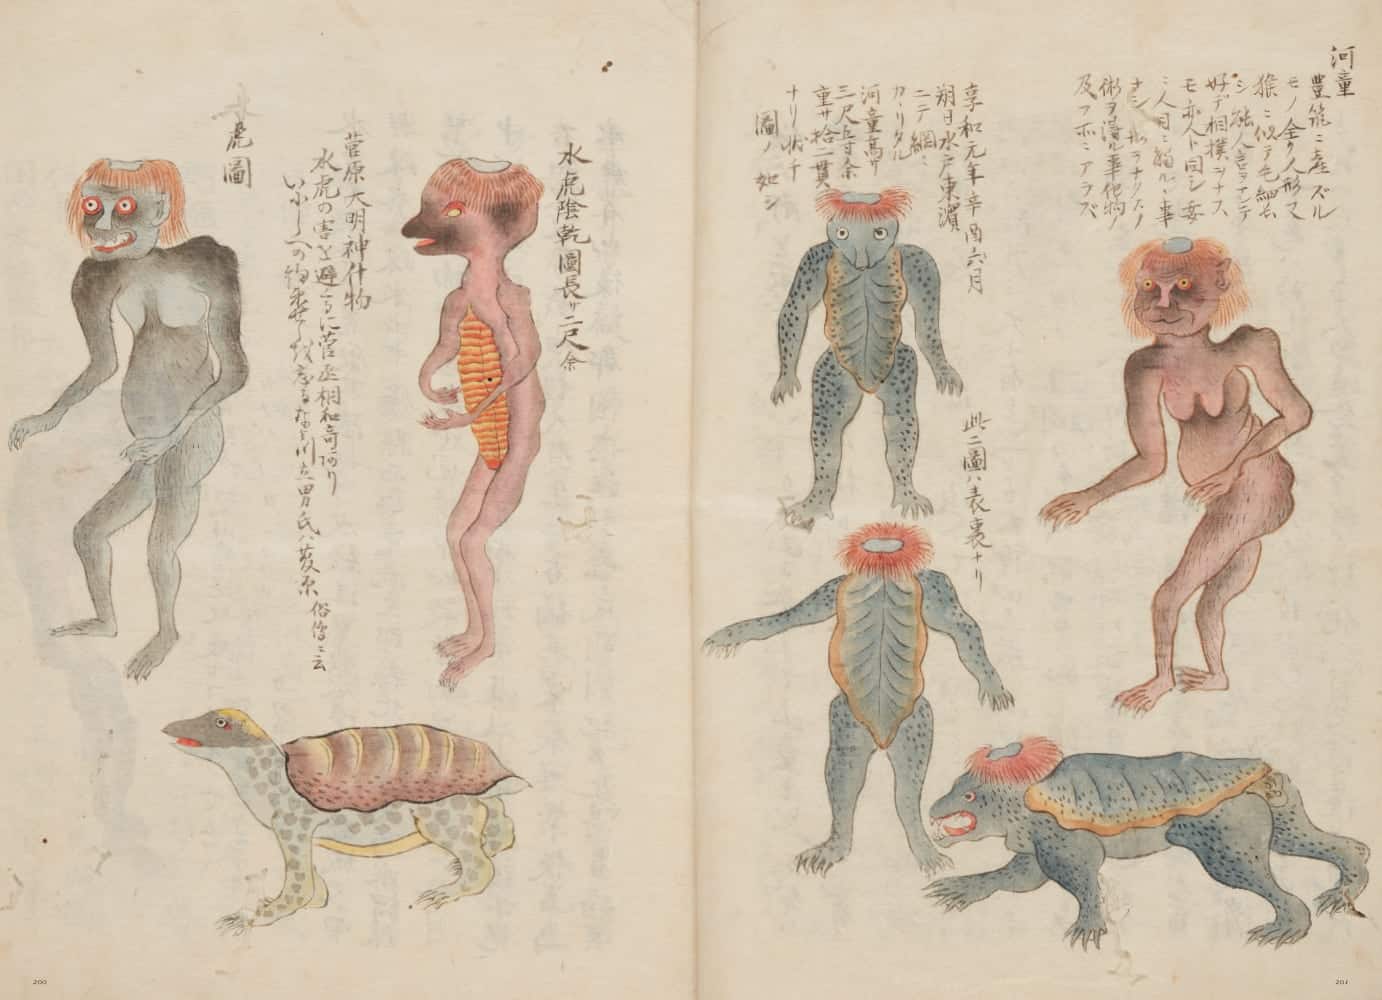 河童
豊筑ニ産ズル
モノ全ク人形又
猿ニ似テ毛細長
シ能人言ヲナシテ
好デ相撲ヲナス
モ亦人ト同シ妄
ニ人目ニ觸ルヽ事
ナシ
術ヲ得ル事他物ノ
及フホニアラズ
享和元年辛酉六月
朔日水戸東濵
ニテ網ニ
カヽリタル
河童高サ
三尺五寸余
重サ拾二貫
ナリ
圖ノ如シ
此二圖ハ表裏ナリ
水虎陰乾圖長サ二尺余
菅原大明神什物
水虎の害を避るに菅丞相和哥あり
いにしへの約束せしを忘るなよ川立男氏ハ菅原
俗傳ニ云
水虎圖
200
201